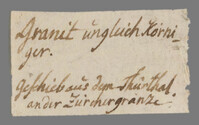 Granit ungleich körni
ger.
Geschieb aus dem Thurthal
an der Zürchergränze.